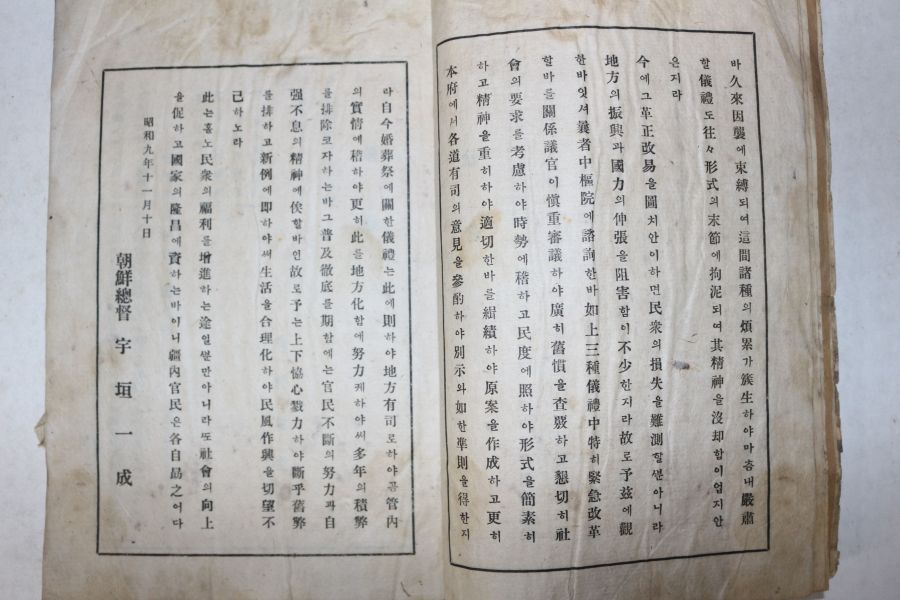 바久來因襲에束縛되여這間諸種의煩累가簇生하야마츰내嚴肅
할儀禮도往々形式의末節에拘泥되여其精神을沒却함이업지안
은지라
今에그革正改易을圖치안이하면民衆의損失을難測할ᄲᅮᆫ아니라
地方의振興과國力의伸張을阻害함이不少한지라故로予玆에觀
한바잇셔曩者中樞院에諮詢한바如上三種儀禮中特히緊急改革
할바를關係議官이愼重審議하야廣히舊慣을査覈하고懇切히社
會의要求를考慮하야時勢에稽하고民度에照하야形式을簡素히
하고精神을重히하야適切한바를緝績하야原案을作成하고更히
本府에서各道有司의意見을參酌하야別示와如한準則을得한지
라自今婚葬祭에關한儀禮는此에則하야地方有司로하야곰管內
의實情에稽하야更히此를地方化함에努力케하야써多年의積弊
를排除코자하는바그普及徹底를期함에는官民不斷의努力과自
强不息의精神에俟할바인故로予는上下協心戮力하야斷乎舊弊
를排하고新例에即하야써生活을合理化하야民風作興을切望不
已하노라
此는홀노民衆의福利를增進하는途일ᄲᅮᆫ만아니라ᄯᅩ社會의向上
을促하고國家의隆昌에資하는바이니疆內官民은各自勗之어다
昭和九年十一月十日
朝鮮總督 宇垣一成